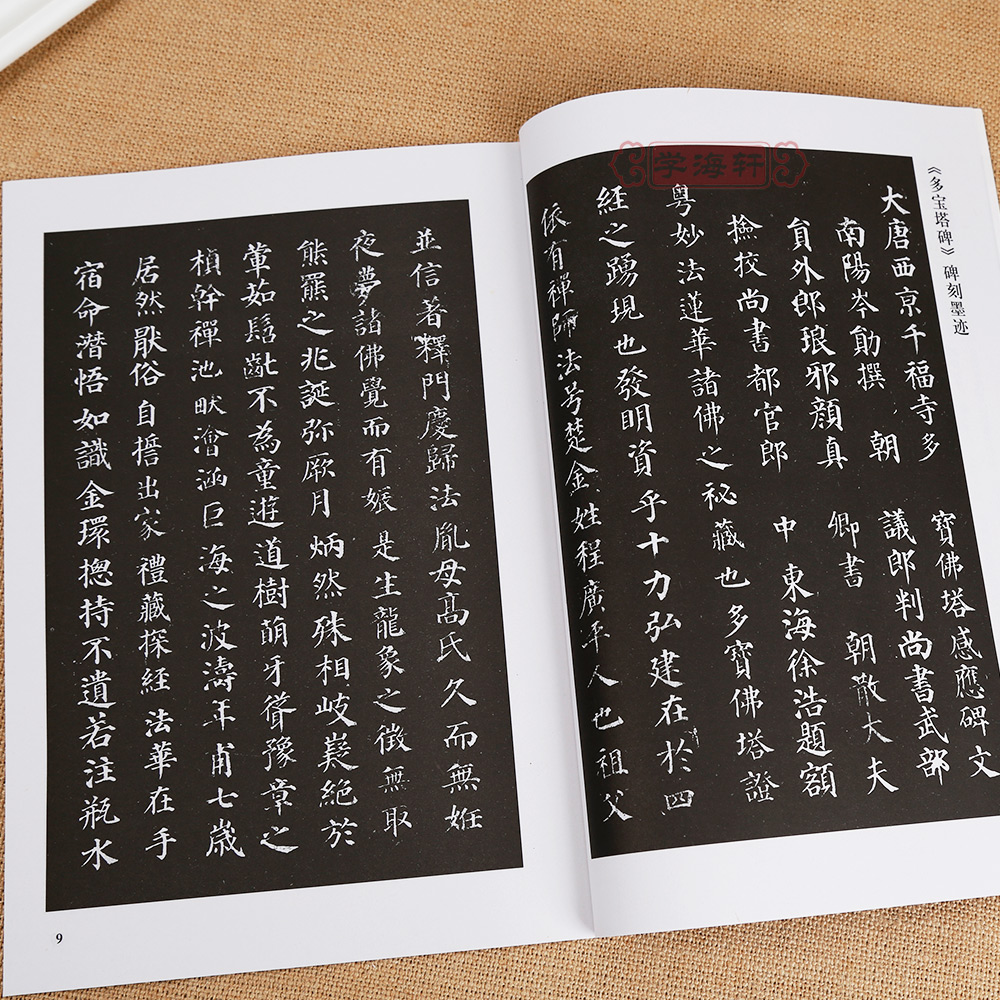 学海轩
《多宝塔碑》碑刻墨迹
大唐西京千福寺多寶佛塔感應碑文
南陽岑勛撰 朝議郎判尚書武部
員外郎琅邪顏真卿書 朝散大夫
撿挍尚書都官郎中東海徐浩題額
粵妙法蓮華諸佛之秘藏也多寶佛塔證
經之踴現也發明資乎十力弘建在於四
依有禪師法号楚金姓程廣平人也祖父
並信著釋門慶歸法胤母髙氏久而無姙
夜夢諸佛覺而有娠是生龍象之徵無取
熊羆之兆誕弥厥月炳然殊相岐嶷絕於
葷茹髫齔不為童遊道樹萌牙聳豫章之
楨幹禪池畎澮涵巨海之波濤年甫七歲
居然厭俗自誓出家禮藏探經法華在手
宿命潛悟如識金環揔持不遺若注瓶水
9